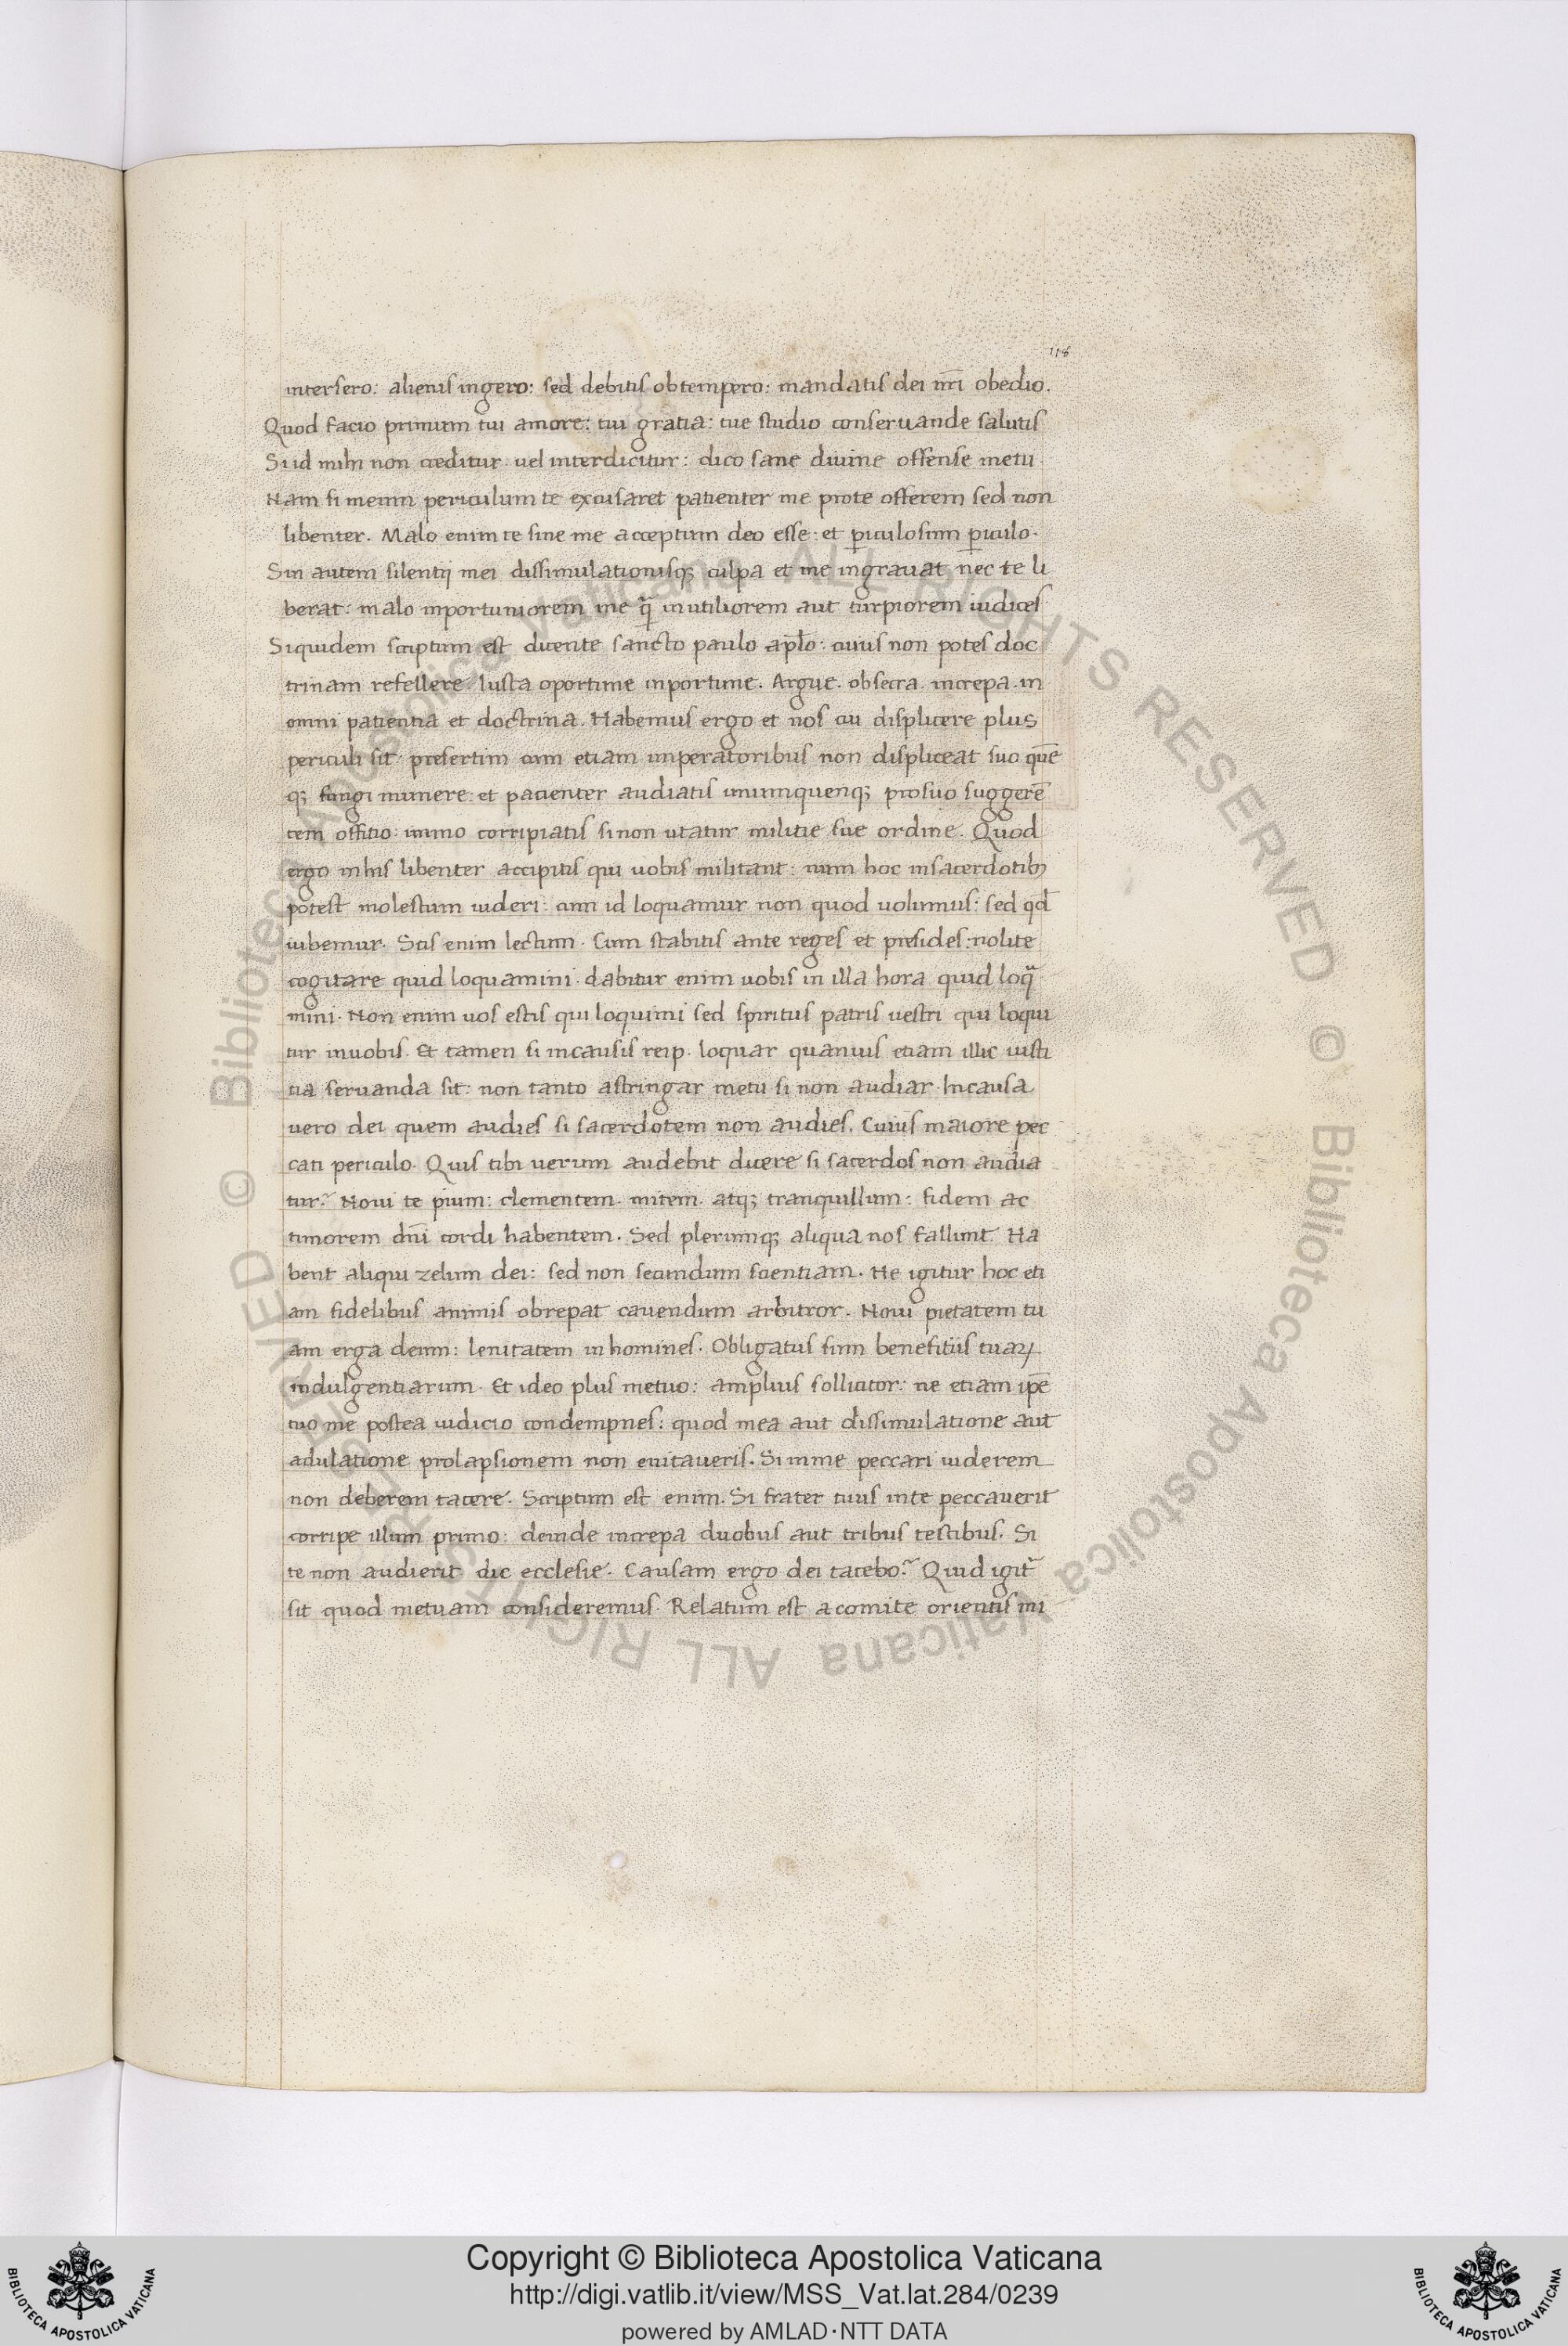 118
intersero: alienis ingero: sed debitis obtempero: mandatis dei nr̄i obedio.
Quod facio primum tui amore: tui gratia: tue studio conseruande salutis
Si id mihi non creditur uel interdicitur: dico sane diuine offense metu.
Nam si meum periculum te excusaret patienter me prote offerem sed non
libenter. Malo enim te sine me acceptum deo esse: et p̲iculosum p̲iculo.
Sin autem silentij mei dissimulationisq; culpa et me ingrauat nec te li
berat: malo inportuniorem me q̄ inutiliorem aut turpiorem iudices
Siquidem scriptum est dicente sancto paulo apl̄o: cuius non potes doc
trinam refellere. Iusta oportune inportune. Argue. obsecra. increpa. in
omni patientia et doctrina. Habemus ergo et nos cui displicere plus
periculi sit: presertim cum etiam imperatoribus non displiceat suo quē
q; fungi munere: et patienter audiatis unumquenq; prosuo suggerē
tem offitio: immo corripiatis si non utatur militie sue ordine. Quod
ergo inhis libenter accipitis qui uobis militant: num hoc insacerdotib;
potest molestum uideri: cum id loquamur non quod uolumus: sed qd̄
iubemur. Scis enim lectum. Cum stabitis ante reges et presides: nolite
cogitare quid loquamini. dabitur enim uobis in illa hora quid loq̄
mini. Non enim uos estis qui loquimi sed spiritus patris uestri qui loqui
tur inuobis. Et tamen si incausis reip. loquar quamuis etiam illic iusti
tia seruanda sit: non tanto astringar metu si non audiar. Incausa
uero dei quem audies si sacerdotem non audies. Cuius maiore pec
cati periculo. Quis tibi uerum audebit dicere si sacerdos non audia
tur? Noui te pium: clementem. mitem. atq; tranquillum: fidem ac
timorem dn̄i cordi habentem. Sed plerumq; aliqua nos fallunt. Ha
bent aliqui zelum dei: sed non secundum scientiam. Ne igitur hoc eti
am fidelibus animis obrepat cauendum arbitror. Noui pietatem tu
am erga deum: lenitatem in homines. Obligatus sum benefitiis tuaꝝ
indulgentiarum. Et ideo plus metuo: amplius sollicitor: ne etiam ip̄e
tuo me postea iudicio condempnes: quod mea aut dissimulatione aut
adulatione prolapsionem non euitaueris. Si inme peccari uiderem
non deberem tacere. Scriptum est enim. Si frater tuus inte peccauerit
corripe illum primo: deinde increpa duobus aut tribus testibus. Si
te non audierit dic ecclesie. Causam ergo dei tacebo? Quid igit̄
sit quod metuam consideremus. Relatum est a comite orientis mi
© Biblioteca Apostolica Vaticana ALL RIGHTS RESERVED © Biblioteca Apostolica Vaticana ALL RIGHTS RESERVED
Copyright © Biblioteca Apostolica Vaticana
http://digi.vatlib.it/view/MSS_Vat.lat.284/0239
powered by AMLAD·NTT DATA
BIBLIOTECA APOSTOLICA VATICANA
BIBLIOTECA APOSTOLICA VATICANA